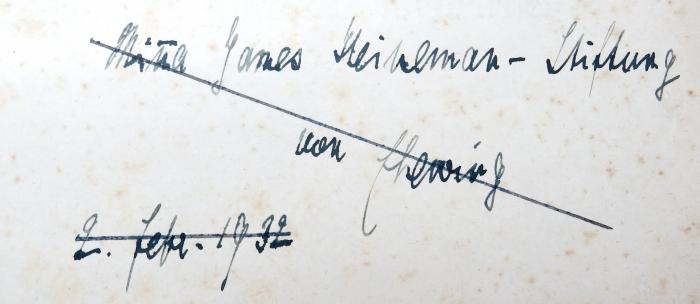 Minna James Heineman-Stiftung
von
2. Febr. 1932